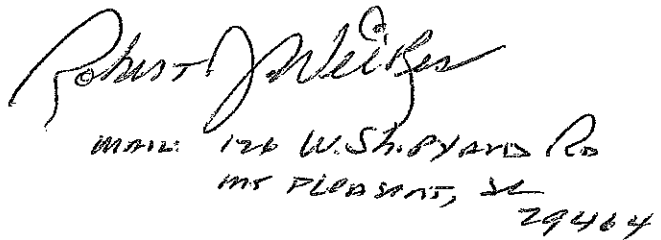 Robert J. Weikes
MAIL: 126 W. ShiPYARD RD
MT PLEASANT, SC
29464